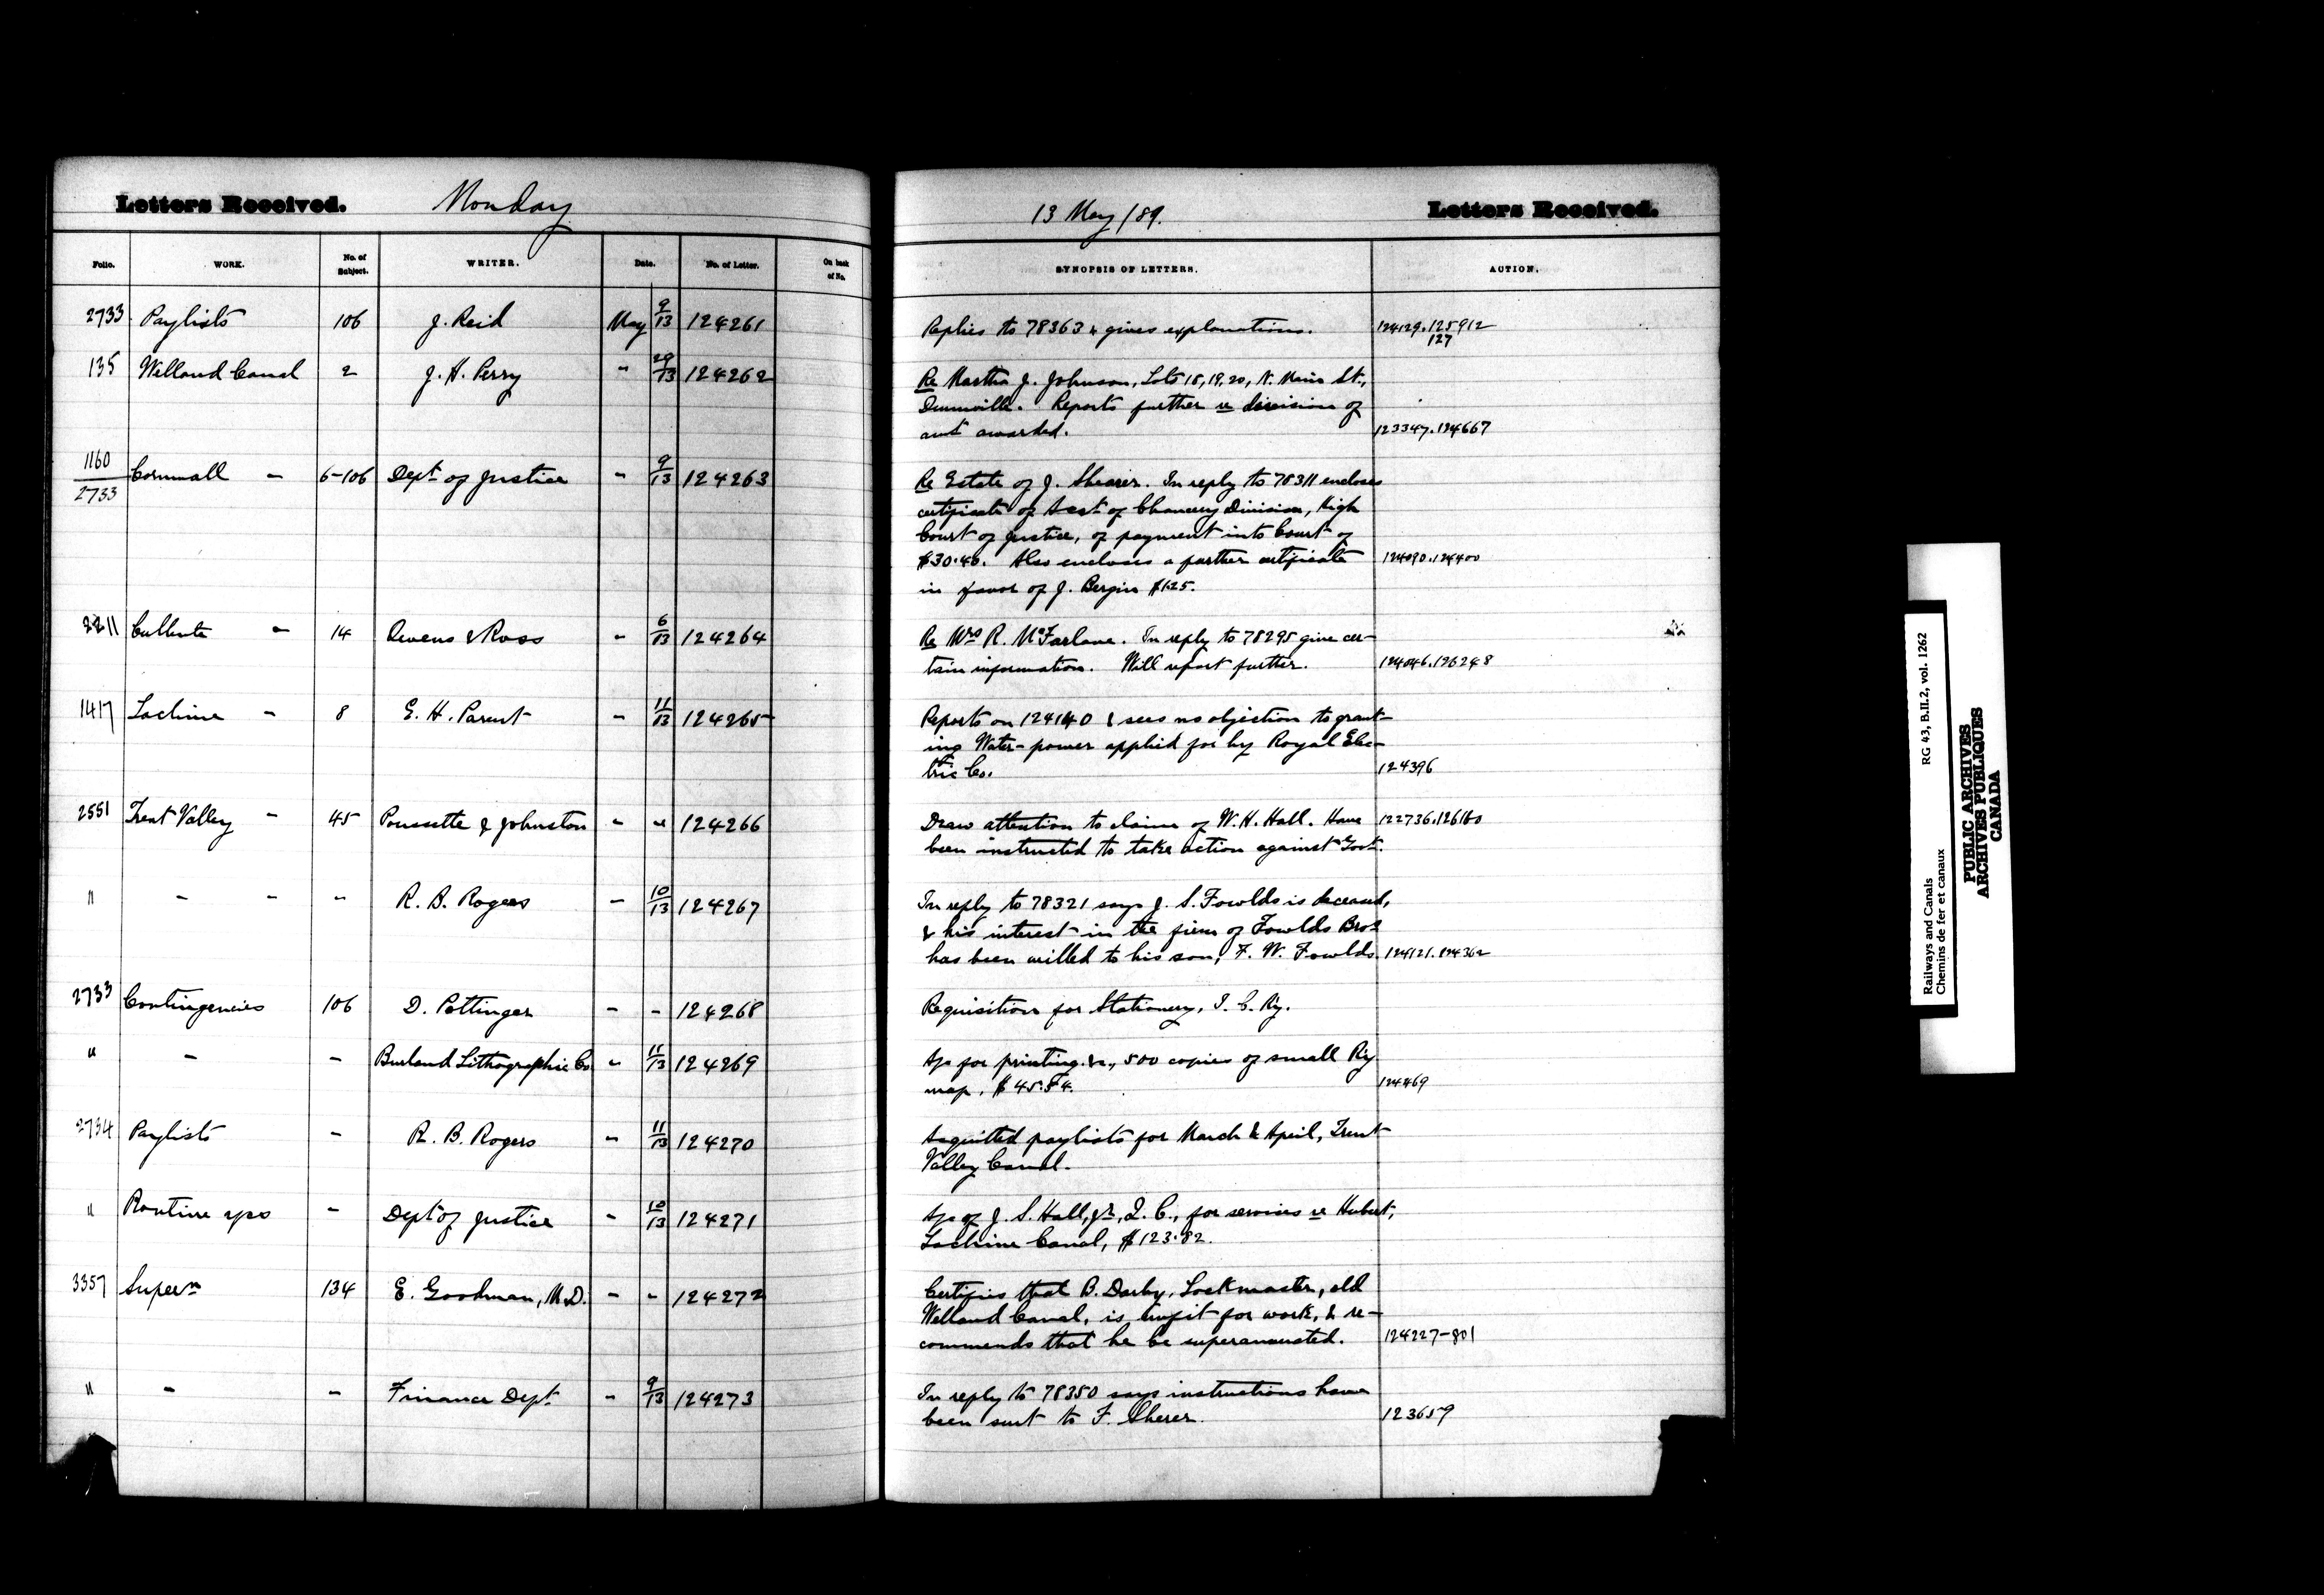 Letters Received. Monday
13 May /89. Letters Received.
Folio. WORK. No. of Subject. WRITER. Date. No. of Letter. On back of No.
SYNOPSIS OF LETTERS. ACTION.
2733 Paylists 106 J. Reid May 9/13 124261
Replies to 78363 & gives explanations. 124129.125912
127
135 Welland Canal 2 J. H. Perry " 29/13 124262
Re Martha J. Johnson, Lots 18, 19, 20, N. Main St.,
Dunnville. Reports further re division of
amt awarded. 123347.124667
1160/2733 Cornwall - 6-106 Dept of Justice - 9/13 124263
Re Estate of J. Shearer. In reply to 78311 encloses
certificate of Acct of Chancery Division, High
Court of Justice, of payment into Court of
$30.40. Also encloses a further certificate 124090.124400
in favor of J. Bergin $125.
2211 Culbute - 14 Owens & Ross - 6/13 124264
Re Mrs R. McFarlane. In reply to 78295 give cer-
tain information. Will report further. 124046.126248
1417 Lachine - 8 E. H. Parent - 11/13 124265
Reports on 124140 & sees no objection to grant-
ing Water-power applied for by Royal Elec-
tric Co. 124396
2551 Trent Valley - 45 Poussette & Johnston - " 124266
Draw attention to claim of W. H. Hall. Have 122736.126160
been instructed to take action against Govt.
" - - - R. B. Rogers - 10/13 124267
In reply to 78321 says J. S. Fowlds is deceased,
& his interest in the firm of Fowlds Bros
has been willed to his son, F. W. Fowlds. 124121.124362
2733 Contingencies 106 D. Pottinger - - 124268
Requisition for Stationery, I. C. Ry.
" - - Burland Lithographic Co. - 11/13 124269
A/c for printing &c., 500 copies of small Ry
map, $45. 124469
2734 Paylists - R. B. Rogers - 11/13 124270
Acquitted paylists for March & April, Trent
Valley Canal.
" Routine a/cs - Dept of Justice - 10/13 124271
A/c of J. S. Hall, Jr, Q. C., for services re Hubert,
Lachine Canal, $123.82.
3357 Supern 134 E. Goodman, M.D. - - 124272
Certifies that B. Darby, Lockmaster, old
Welland Canal, is unfit for work, & re-
commends that he be superannuated. 124227-801
" - - Finance Dept - 9/13 124273
In reply to 78350 says instructions have
been sent to F. Sherer. 123659
Railways and Canals RG 43, B.II.2, vol. 1262
Chemins de fer et canaux
PUBLIC ARCHIVES
ARCHIVES PUBLIQUES
CANADA